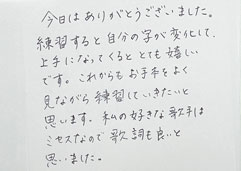 今日はありがとうございました。
練習すると自分の字が変化して、
上手になってくると とても嬉しい
です。これからもお手本をよく
見ながら練習していきたいと
思います。私の好きな歌手は
ミセスなので歌詞も良いと
思いました。